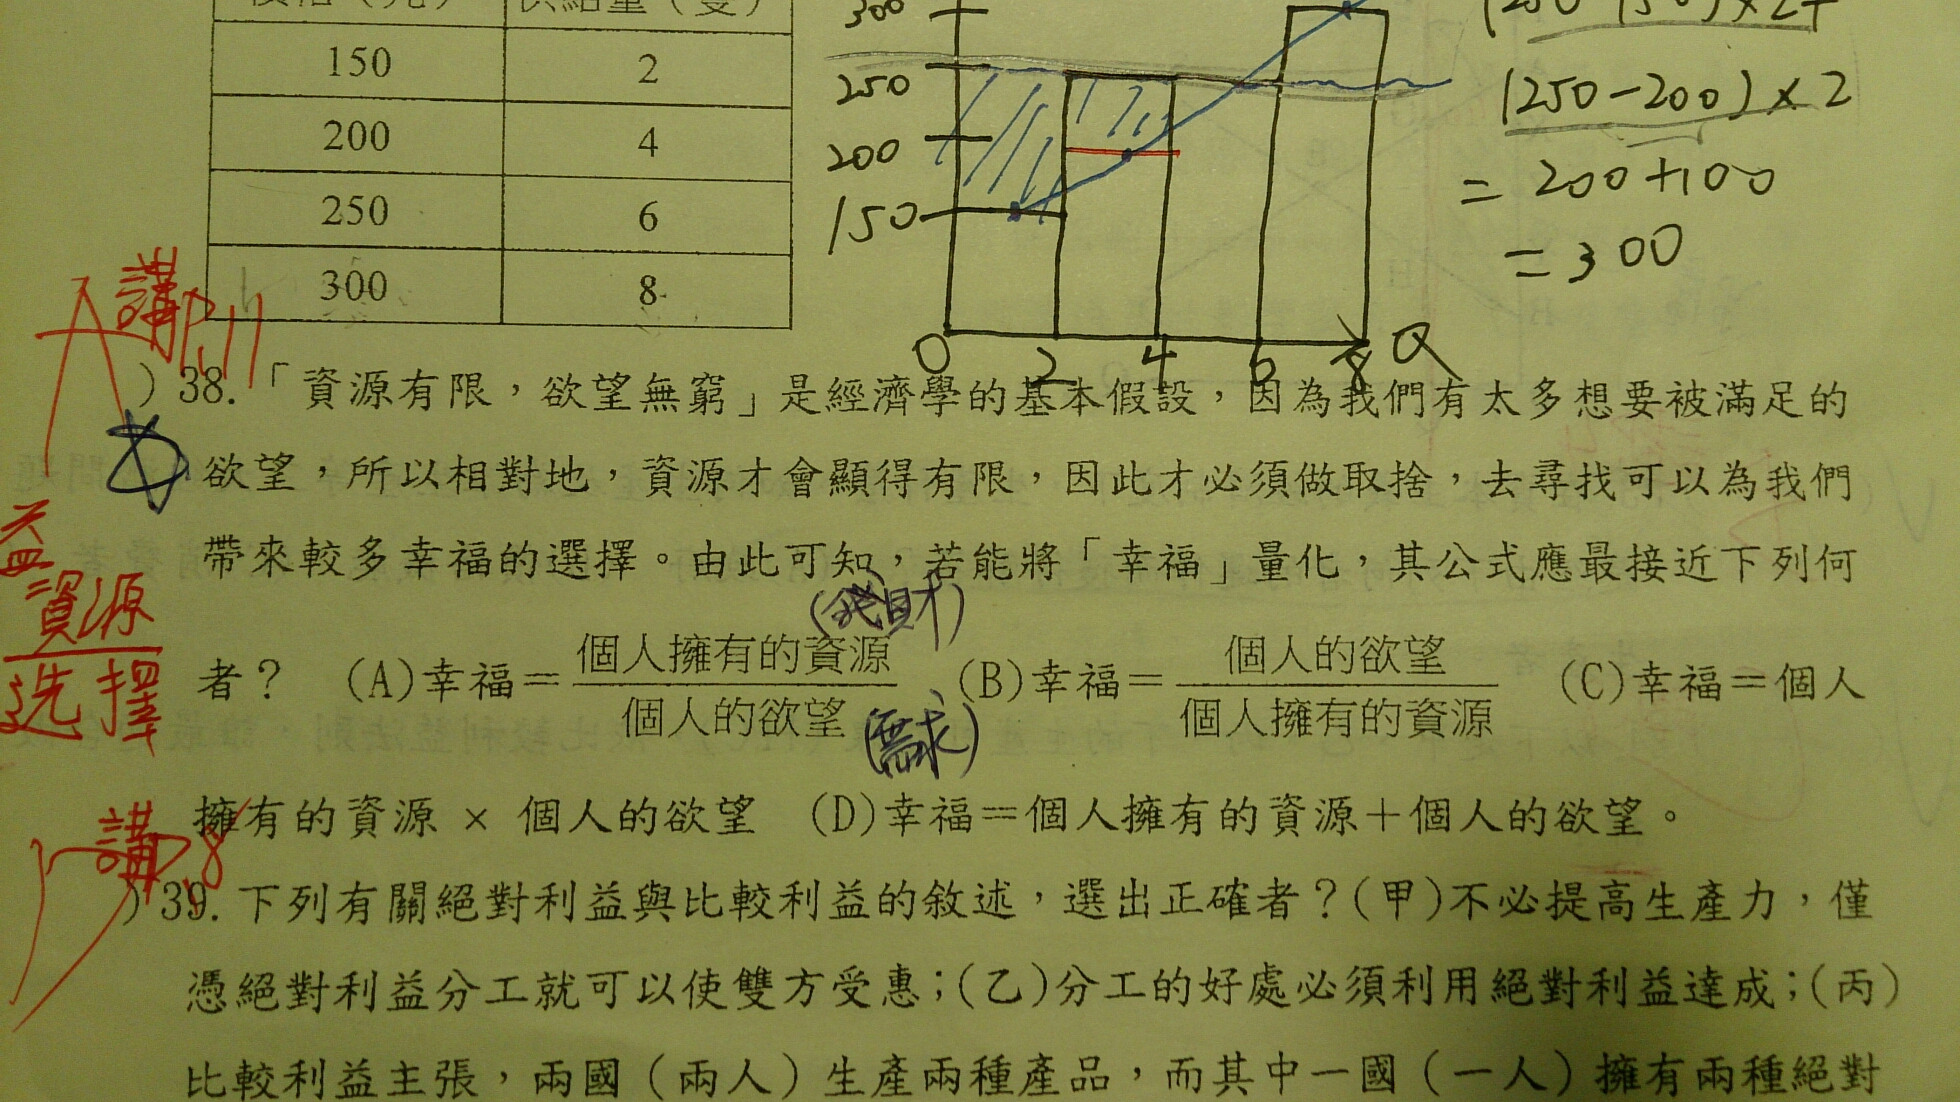 價格（元） 供給量（雙）
150 2
200 4
250 6
300 8
300
250
200
150
0 2 4 6 8 Q
(250-200)×2
=200+100
=300
講P.11
）38.「資源有限，欲望無窮」是經濟學的基本假設，因為我們有太多想要被滿足的
欲望，所以相對地，資源才會顯得有限，因此才必須做取捨，去尋找可以為我們
帶來較多幸福的選擇。由此可知，若能將「幸福」量化，其公式應最接近下列何
者？ (A)幸福＝個人擁有的資源/個人的欲望 (B)幸福＝個人的欲望/個人擁有的資源 (C)幸福＝個人
(錢財)
(需求)
資源
选擇
擁有的資源 × 個人的欲望 (D)幸福＝個人擁有的資源＋個人的欲望。
講P.8
）39. 下列有關絕對利益與比較利益的敘述，選出正確者？(甲)不必提高生產力，僅
憑絕對利益分工就可以使雙方受惠；(乙)分工的好處必須利用絕對利益達成；(丙)
比較利益主張，兩國（兩人）生產兩種產品，而其中一國（一人）擁有兩種絕對